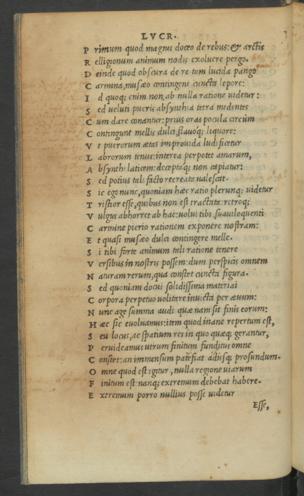 LVCR.
P rimum quod magnis doceo de rebus: & arctis
R elligionum animum nodis exoluere pergo.
D einde quod obscura de re tam lucida pango
C armina, musæo contingens cuncta lepore:
I d quoq; enim non ab nulla ratione uidetur:
S ed ueluti pueris absynthia tetra medentes
C um dare conantur: prius oras pocula circum
C ontingunt mellis dulci, flauoq; liquore:
V t puerorum ætas improuida ludificetur
L abrorum tenus: interea perpotet amarum,
A bsynthi laticem: deceptaq; non capiatur:
S ed potius tali facto recreata ualescat.
S ic ego nunc, quoniam hæc ratio plerunq; uidetur
T ristior esse, quibus non est tractata: retroq;
V ulgus abhorret ab hac: uolui tibi suauiloquenti
C armine pierio rationem exponere nostram:
E t quasi musæo dulci contingere melle.
S i tibi forte animum tali ratione tenere
V ersibus in nostris possem: dum perspicis omnem
N aturam rerum, qua constet cuncta figura.
S ed quoniam docui solidissima materiai
C orpora perpetuo uolitare inuicta per æuum:
N unc age summa audi quæ nam sit finis eorum:
H æc sic euoluamus: item quod inane repertum est,
S eu locus, ac spatium res in quo quæq; gerantur,
P eruideamus utrum finitum funditus omne
C onstet: an immensum patefiat adusq; profundum.
O mne quod est igitur, nulla regione uiarum
F initum est: nanq; extremum debebat habere.
E xtremum porro nullius posse uidetur
Esse,